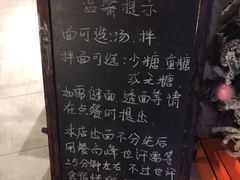 温馨提示
面可选:汤、拌
拌面可选:少糖 重糖
或无糖
如需硬面 透面等 请
在点餐时提出
本店出面不分先后
用餐高峰也许需等
25分钟左右 不过也许